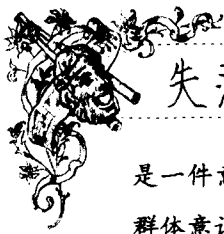 失
是一件
群体意